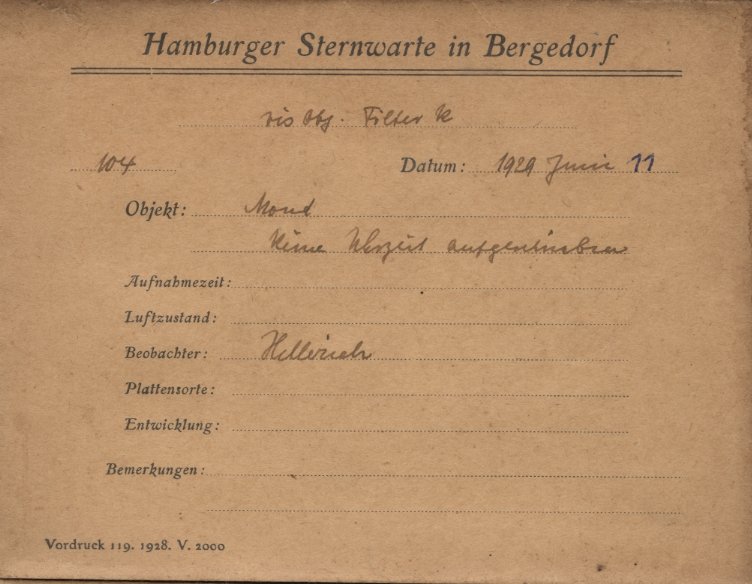 Hamburger Sternwarte in Bergedorf
vis Obj. Filter k
104 Datum: 1929 Juni 11
Objekt: Mond
keine Uhrzeit aufgeschrieben
Aufnahmezeit:
Luftzustand:
Beobachter: Hellerich
Plattensorte:
Entwicklung:
Bemerkungen:
Vordruck 119. 1928. V. 2000